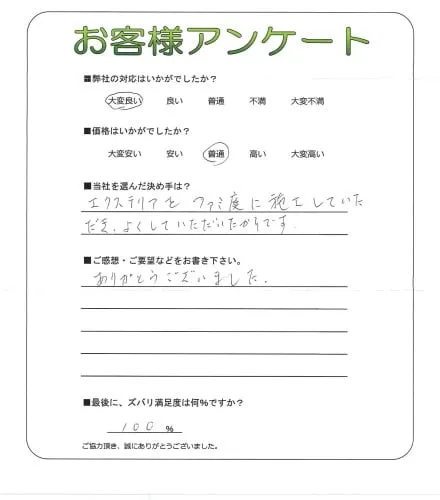 お客様アンケート
■弊社の対応はいかがでしたか?
大変良い 良い 普通 不満 大変不満
■価格はいかがでしたか?
大変安い 安い 普通 高い 大変高い
■当社を選んだ決め手は?
エクステリアを 度に施工していた
だき、よくしていただいたからです.
■ご感想・ご要望などをお書き下さい。
ありがとうございました.
■最後に、ズバリ満足度は何%ですか?
100 %
ご協力頂き、誠にありがとうございました。